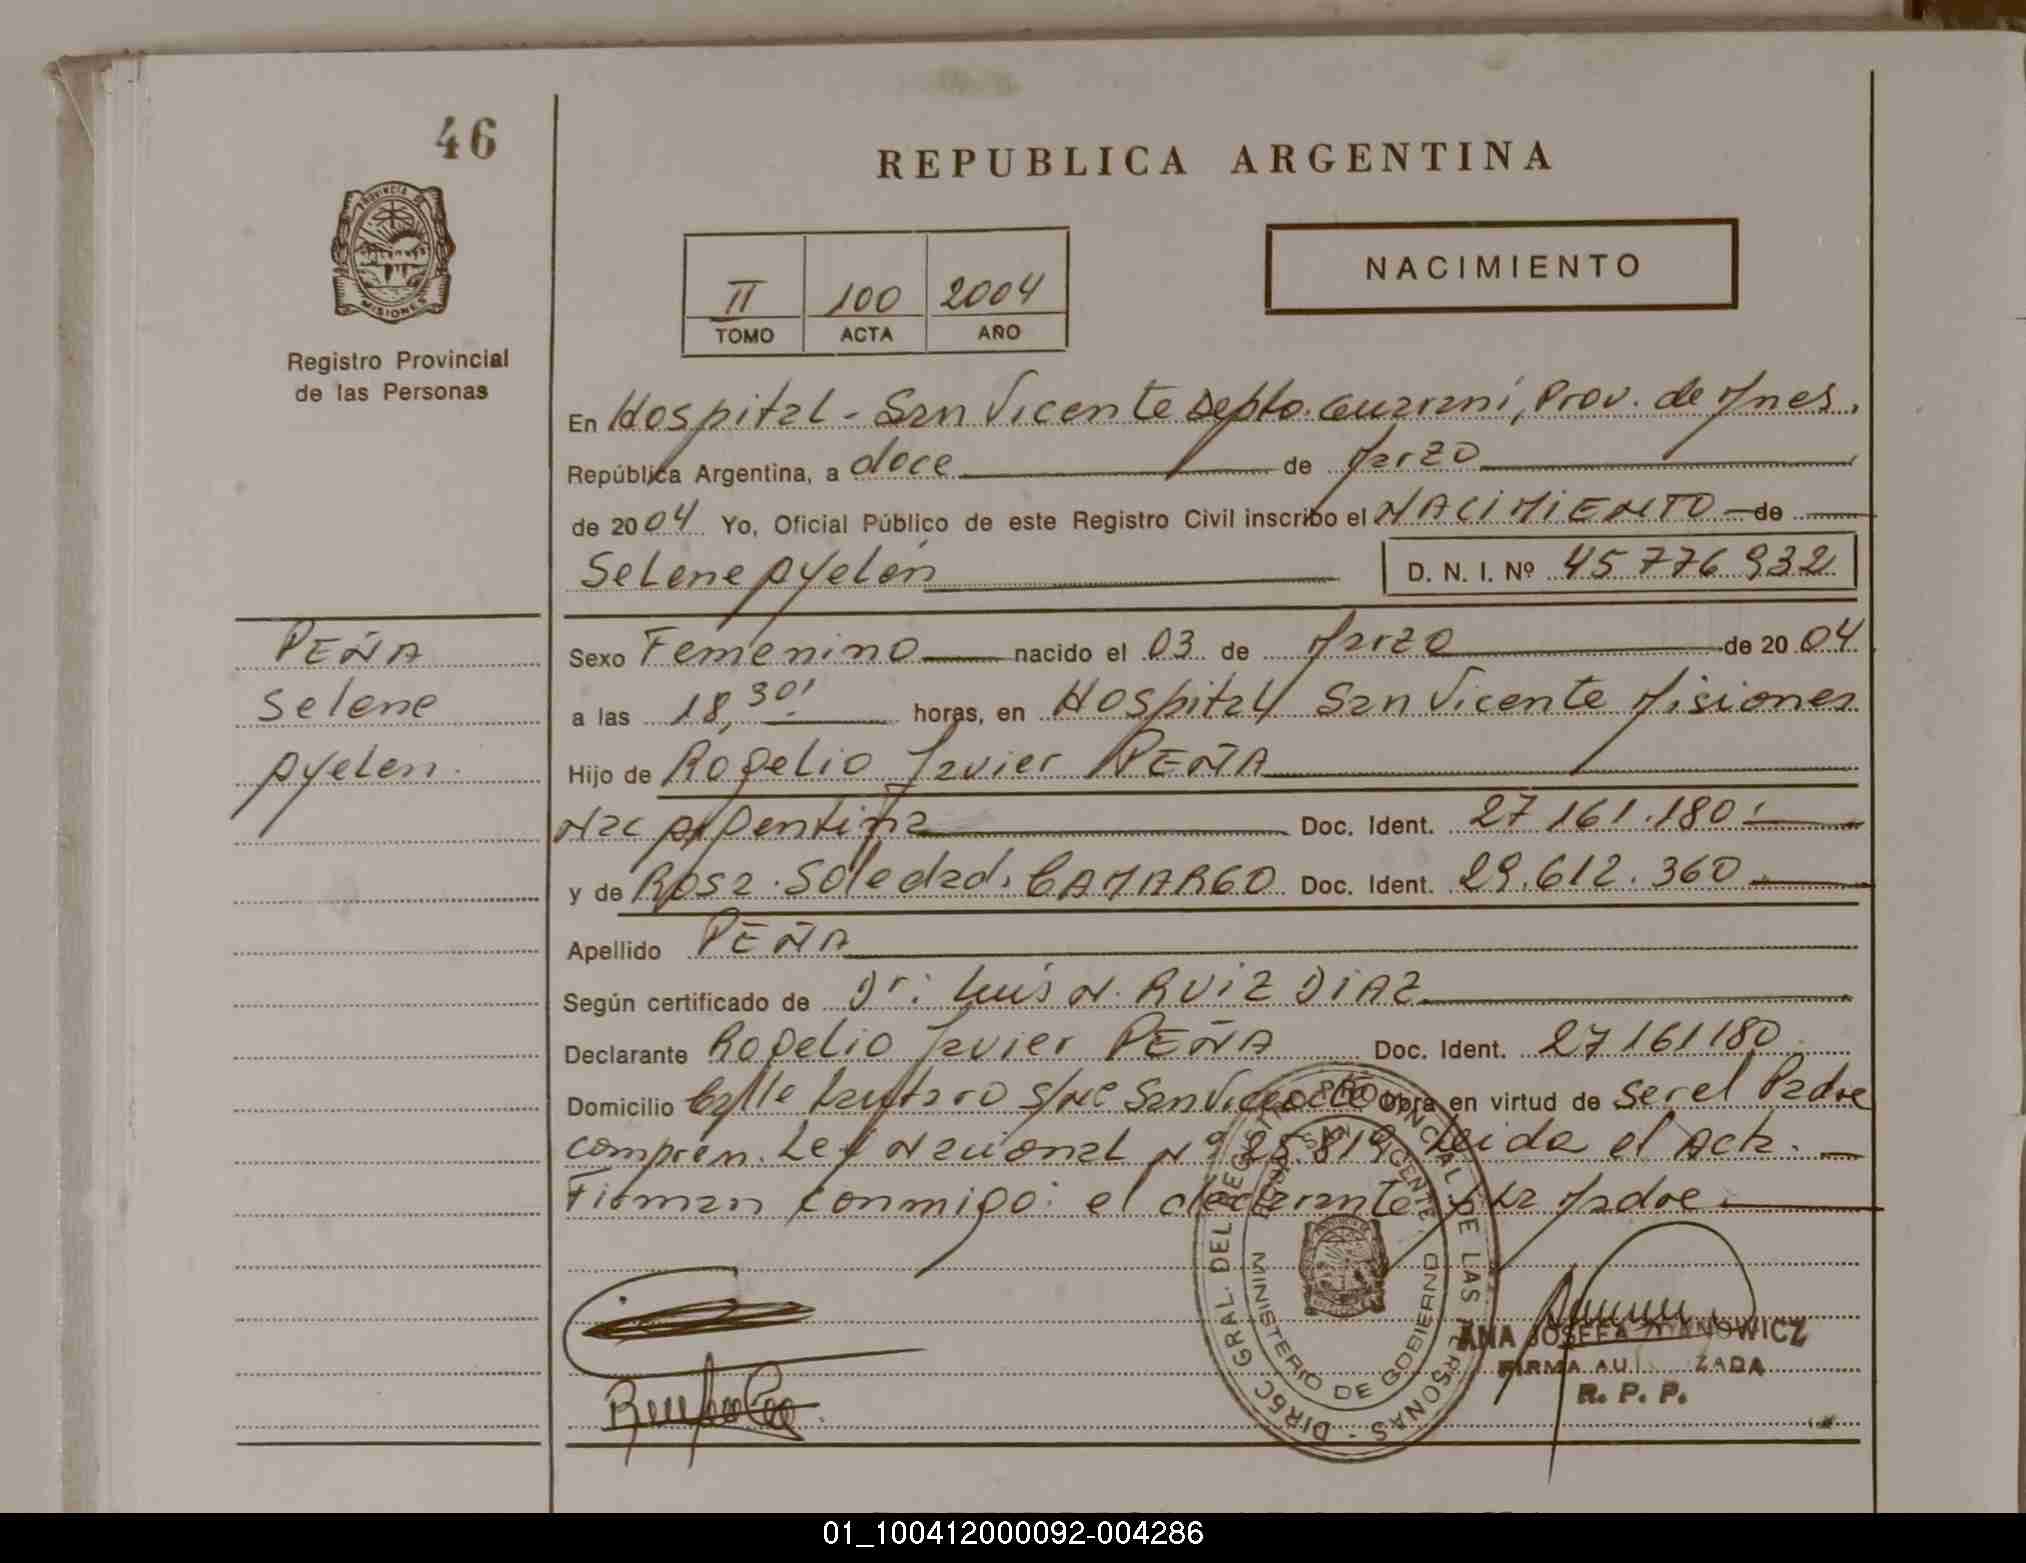 46
REPUBLICA ARGENTINA
PROVINCIA DE
MISIONES
Registro Provincial
de las Personas
II 100 2004
TOMO ACTA AÑO
NACIMIENTO
En Hospital - San Vicente Depto. Guaraní, Prov. de Mnes.
República Argentina, a doce de Marzo
de 2004 Yo, Oficial Público de este Registro Civil inscribo el NACIMIENTO de
Selene Ayelén D. N. I. Nº 45776932
PEÑA
Selene
Ayelen.
Sexo Femenino nacido el 03 de Marzo de 2004
a las 18,30' horas, en Hospital San Vicente Misiones
Hijo de Rogelio Javier PEÑA
Nac Argentina Doc. Ident. 27161.180.
y de Rosa Soledad. CAMARGO Doc. Ident. 29.612.360
Apellido PEÑA
Según certificado de Dr: Luis N. RUIZ DIAZ
Declarante Rogelio Javier PEÑA Doc. Ident. 27161180
Domicilio Calle Lautaro S/Nº San Vicente Obra en virtud de ser el Padre
compren. Ley Nacional Nº 25.819. Leida el Acta.
Firman conmigo: el declarante y La Madre
DIREC. GRAL. DEL REGISTRO PROVINCIAL DE LAS PERSONAS
MINISTERIO DE GOBIERNO
SAN
ANA JOSEFA
FIRMA AU ZADA
R. P. P.
01_100412000092-004286